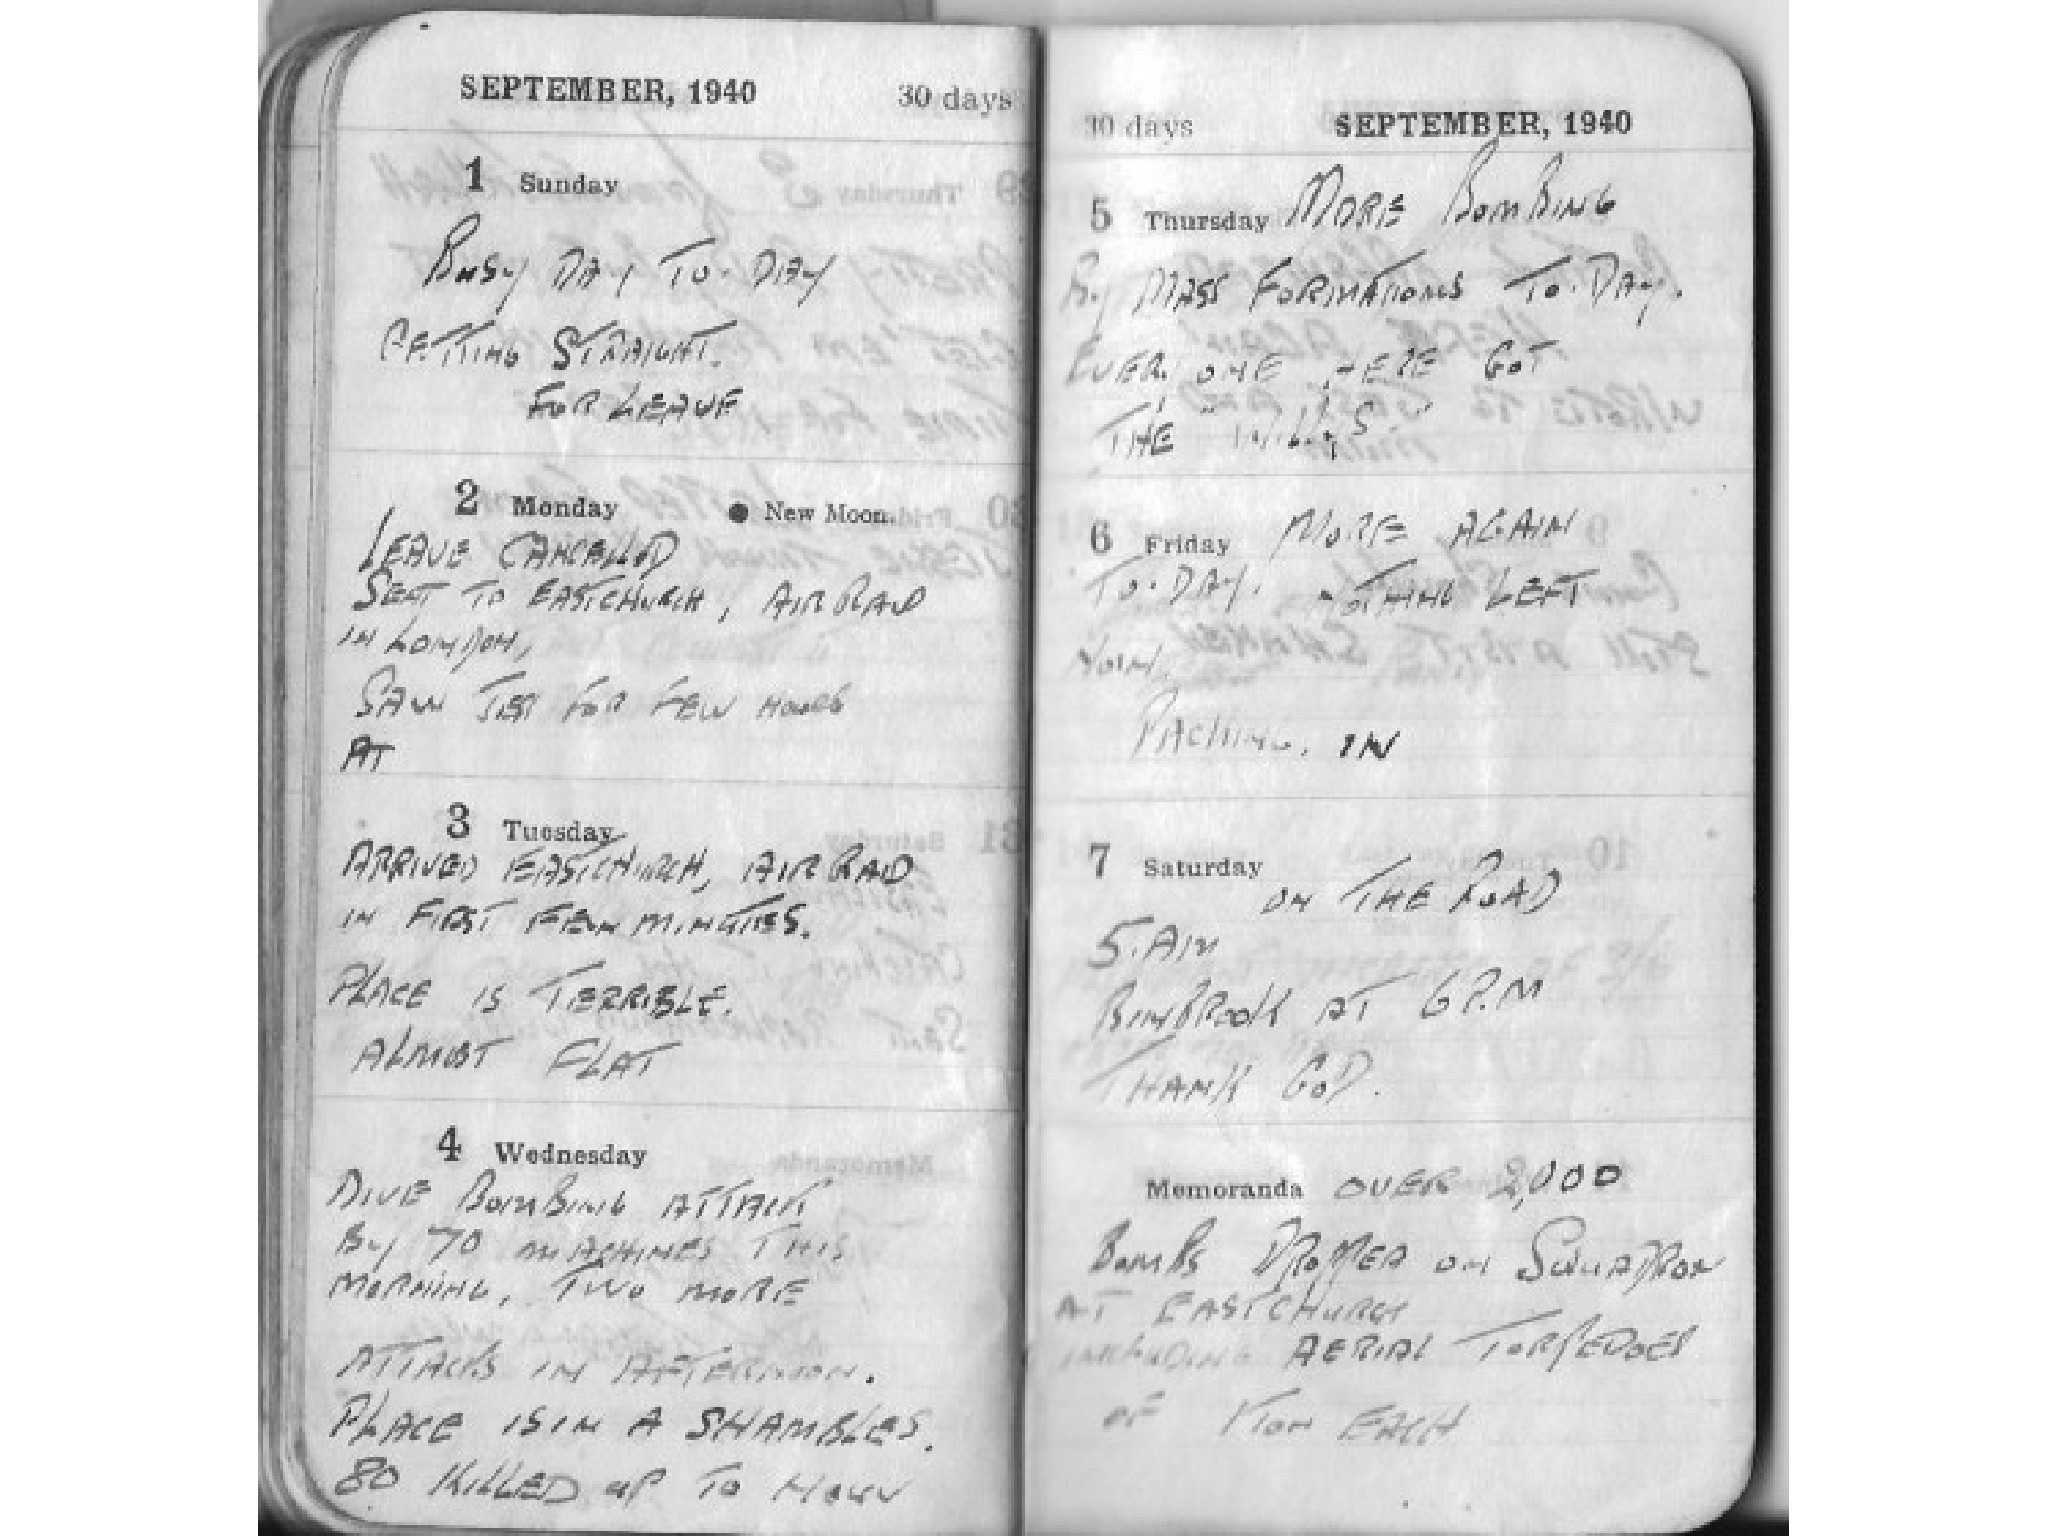 SEPTEMBER, 1940 30 days
1 Sunday
BUSY DAY TO-DAY
GETTING STRAIGHT.
FOR LEAVE
2 Monday ● New Moon.
LEAVE CANCELLED
SENT TO EASTCHURCH, AIR RAID
IN LONDON,
SAW FOR FEW HOURS
AT
3 Tuesday
ARRIVED EASTCHURCH, AIR RAID
IN FIRST FEW MINUTES.
PLACE IS TERRIBLE.
ALMOST FLAT
4 Wednesday
DIVE BOMBING ATTACK
BY 70 MACHINES THIS
MORNING, TWO MORE
ATTACKS IN AFTERNOON.
PLACE IS IN A SHAMBLES.
80 KILLED UP TO NOW
30 days SEPTEMBER, 1940
5 Thursday MORE BOMBING
BY MASS FORMATIONS TO-DAY.
EVERY ONE HERE GOT
THE "WILLYS"
6 Friday MORE AGAIN
TO-DAY. NOTHING LEFT
NOW.
PACKING. IN
7 Saturday ON THE ROAD
5.AM
BINBROOK AT 6 P.M
THANK GOD.
Memoranda OVER 2,000
BOMBS DROPPED ON SQUADRON
AT EASTCHURCH
INCLUDING AERIAL TORPEDOES
OF 1 TON EACH